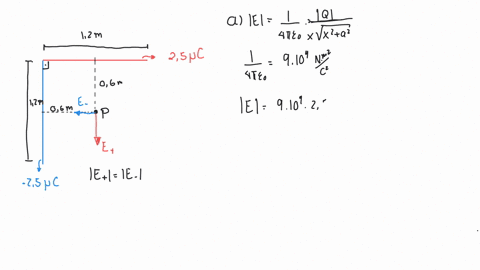 1,2m
2,5 µC
0,6m
1,2m
0,6m
E-
P
E+
-2,5 µC
|E+| = |E-|
a) |E| = 1/4πε₀ · |Q|/x√x²+a²
1/4πε₀ = 9.10⁹ Nm²/C²
|E| = 9.10⁹ . 2,